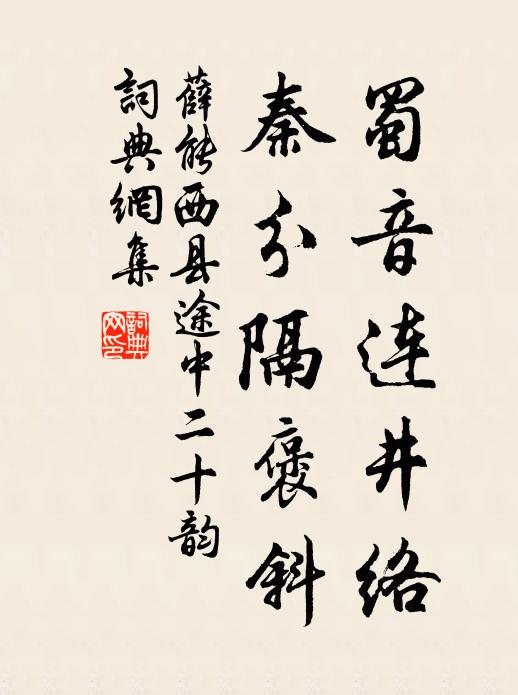 蜀音连井络
秦分隔褒斜
薛能西县途中二十韵
詞典網集
詞典网印